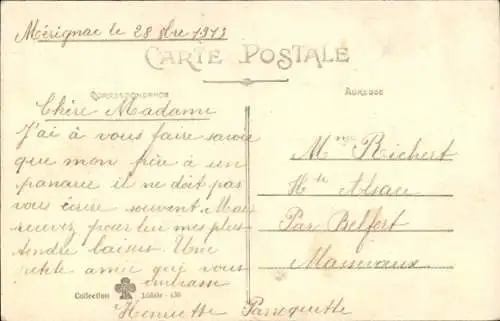 Mérignac le 28 9bre 1913
CARTE POSTALE
CORRESPONDANCE
ADRESSE
Chère Madame
J'ai à vous faire savoir
que mon père à un
panaric il ne doit pas
vous écrire souvent Mais
recevez pour lui mes plus
tendre baiser. Une
petite amie qui vous
embrasse
Henriette Parroquette
Mme Richert
Hte Alsace
Par Belfort
Massevaux
Collection